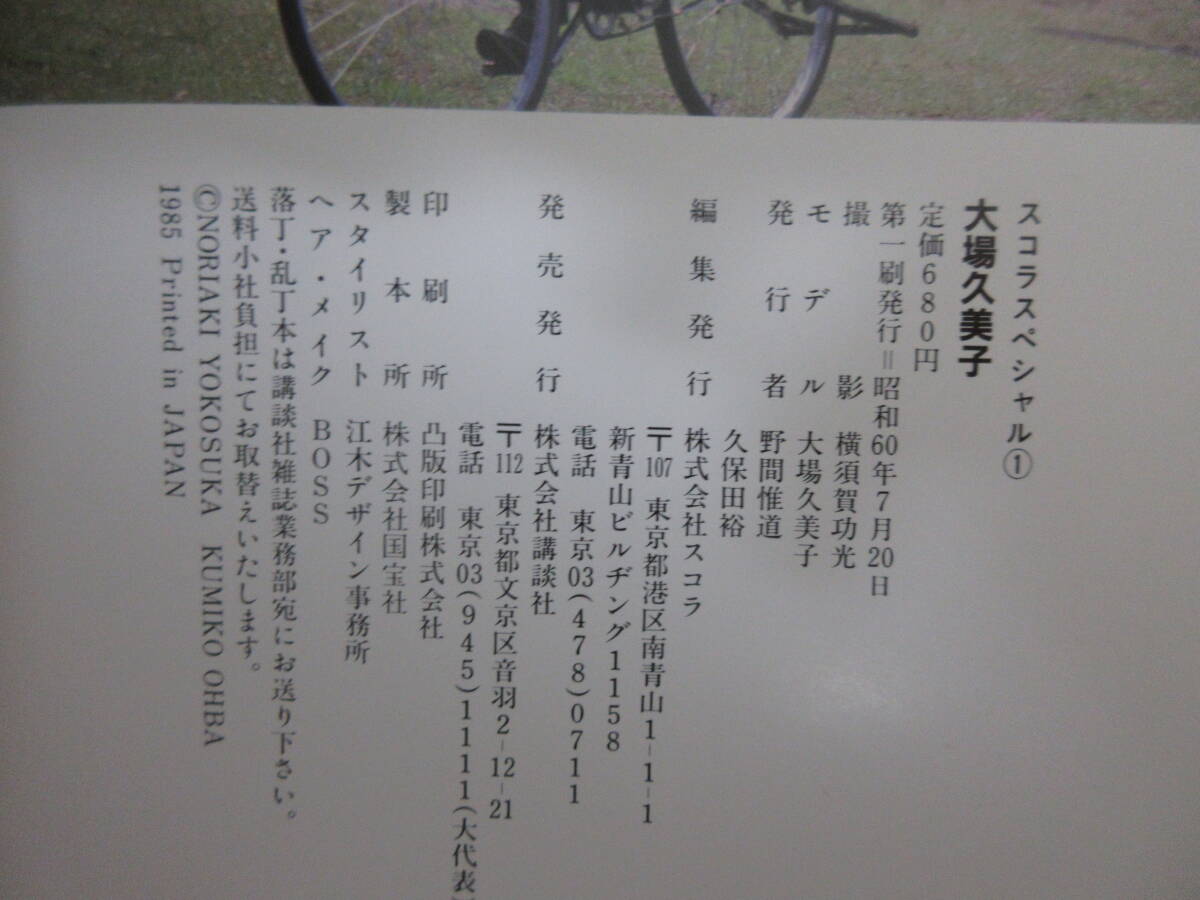 スコラスペシャル①
大場久美子
定価680円
第一刷発行＝昭和60年7月20日
撮影 横須賀功光
モデル 大場久美子
発行者 野間惟道
久保田裕
編集発行 株式会社スコラ
〒107 東京都港区南青山1-1-1
新青山ビルヂング1158
電話 東京03(478)0711
発売発行 株式会社講談社
〒112 東京都文京区音羽2-12-21
電話 東京03(945)1111(大代表)
印刷所 凸版印刷株式会社
製本所 株式会社国宝社
スタイリスト 江木デザイン事務所
ヘア・メイク BOSS
落丁・乱丁本は講談社雑誌業務部宛にお送り下さい。
送料小社負担にてお取替えいたします。
©NORIAKI YOKOSUKA KUMIKO OHBA
1985 Printed in JAPAN